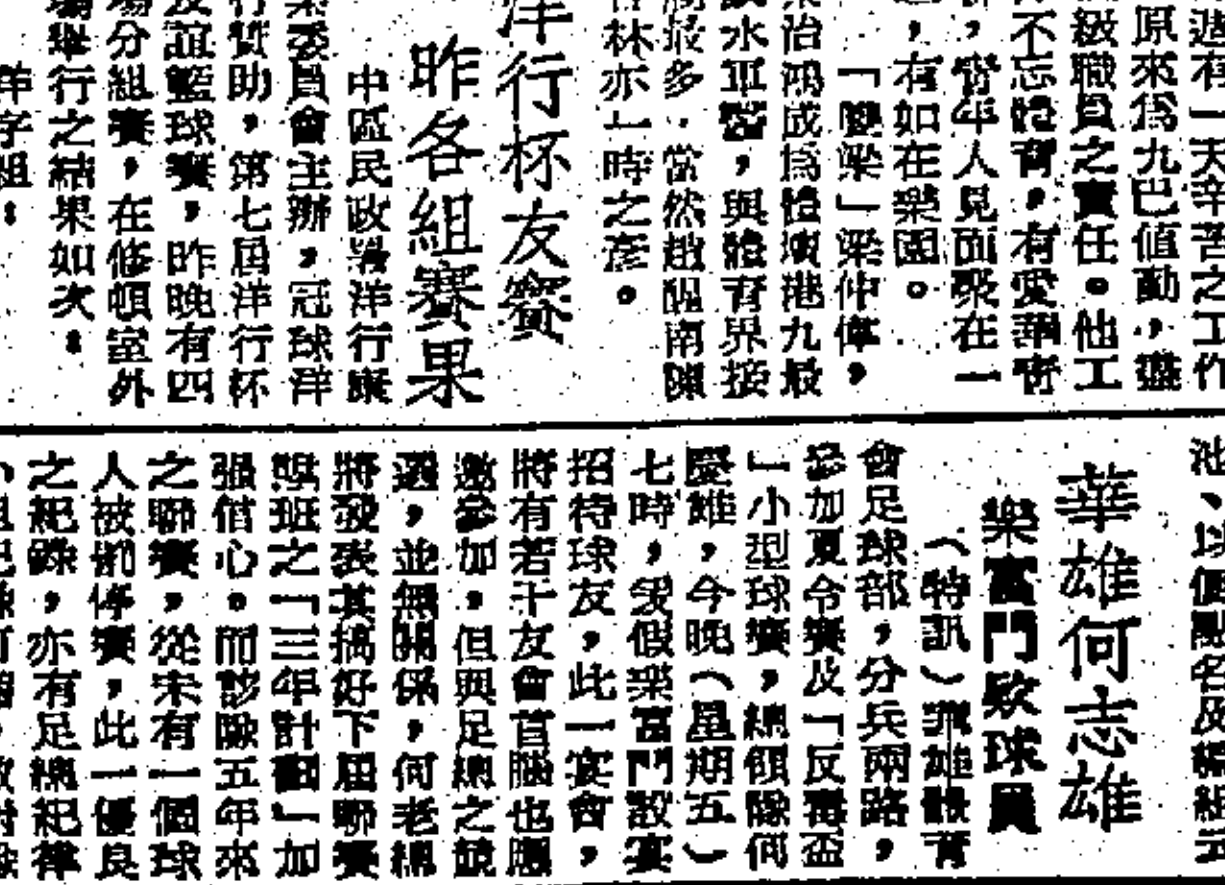 過有一天辛苦之工作
原來為九巴值勤，盡
級職員之責任。他工
不忘體育，有愛華
，青年人見面聚在一
，有如在樂園。
「雙梁」梁仲偉，
治鴻成為體壇港九最
水軍醫，與體育界接
最多，當然趙醒南陳
林亦一時之彥。
洋行杯友賽
昨各組賽果
中區民政署洋行康
委員會主辦，冠球洋
行贊助，第七屆洋行杯
友誼籃球賽，昨晚有四
場分組賽，在修頓室外
場舉行之結果如次：
洋字組：
池、以個點名及編組云
華雄何志雄
樂富門歘球員
（特訊）華雄體育
會足球部，分兵兩路，
參加夏令賽及「反毒盃
」小型球賽，總領隊何
慶維，今晚（星期五）
七時，爰假樂富門設宴
招待球友，此一宴會，
將有若干友會首腦也應
邀參加。但與足總之競
選，並無關係，何老總
將發表其搞好下屆聯賽
班之「三年計劃」加
強信心。而該隊五年來
之聯賽，從未有一個球
人被停賽，此一優良
之紀錄，亦有足總紀律